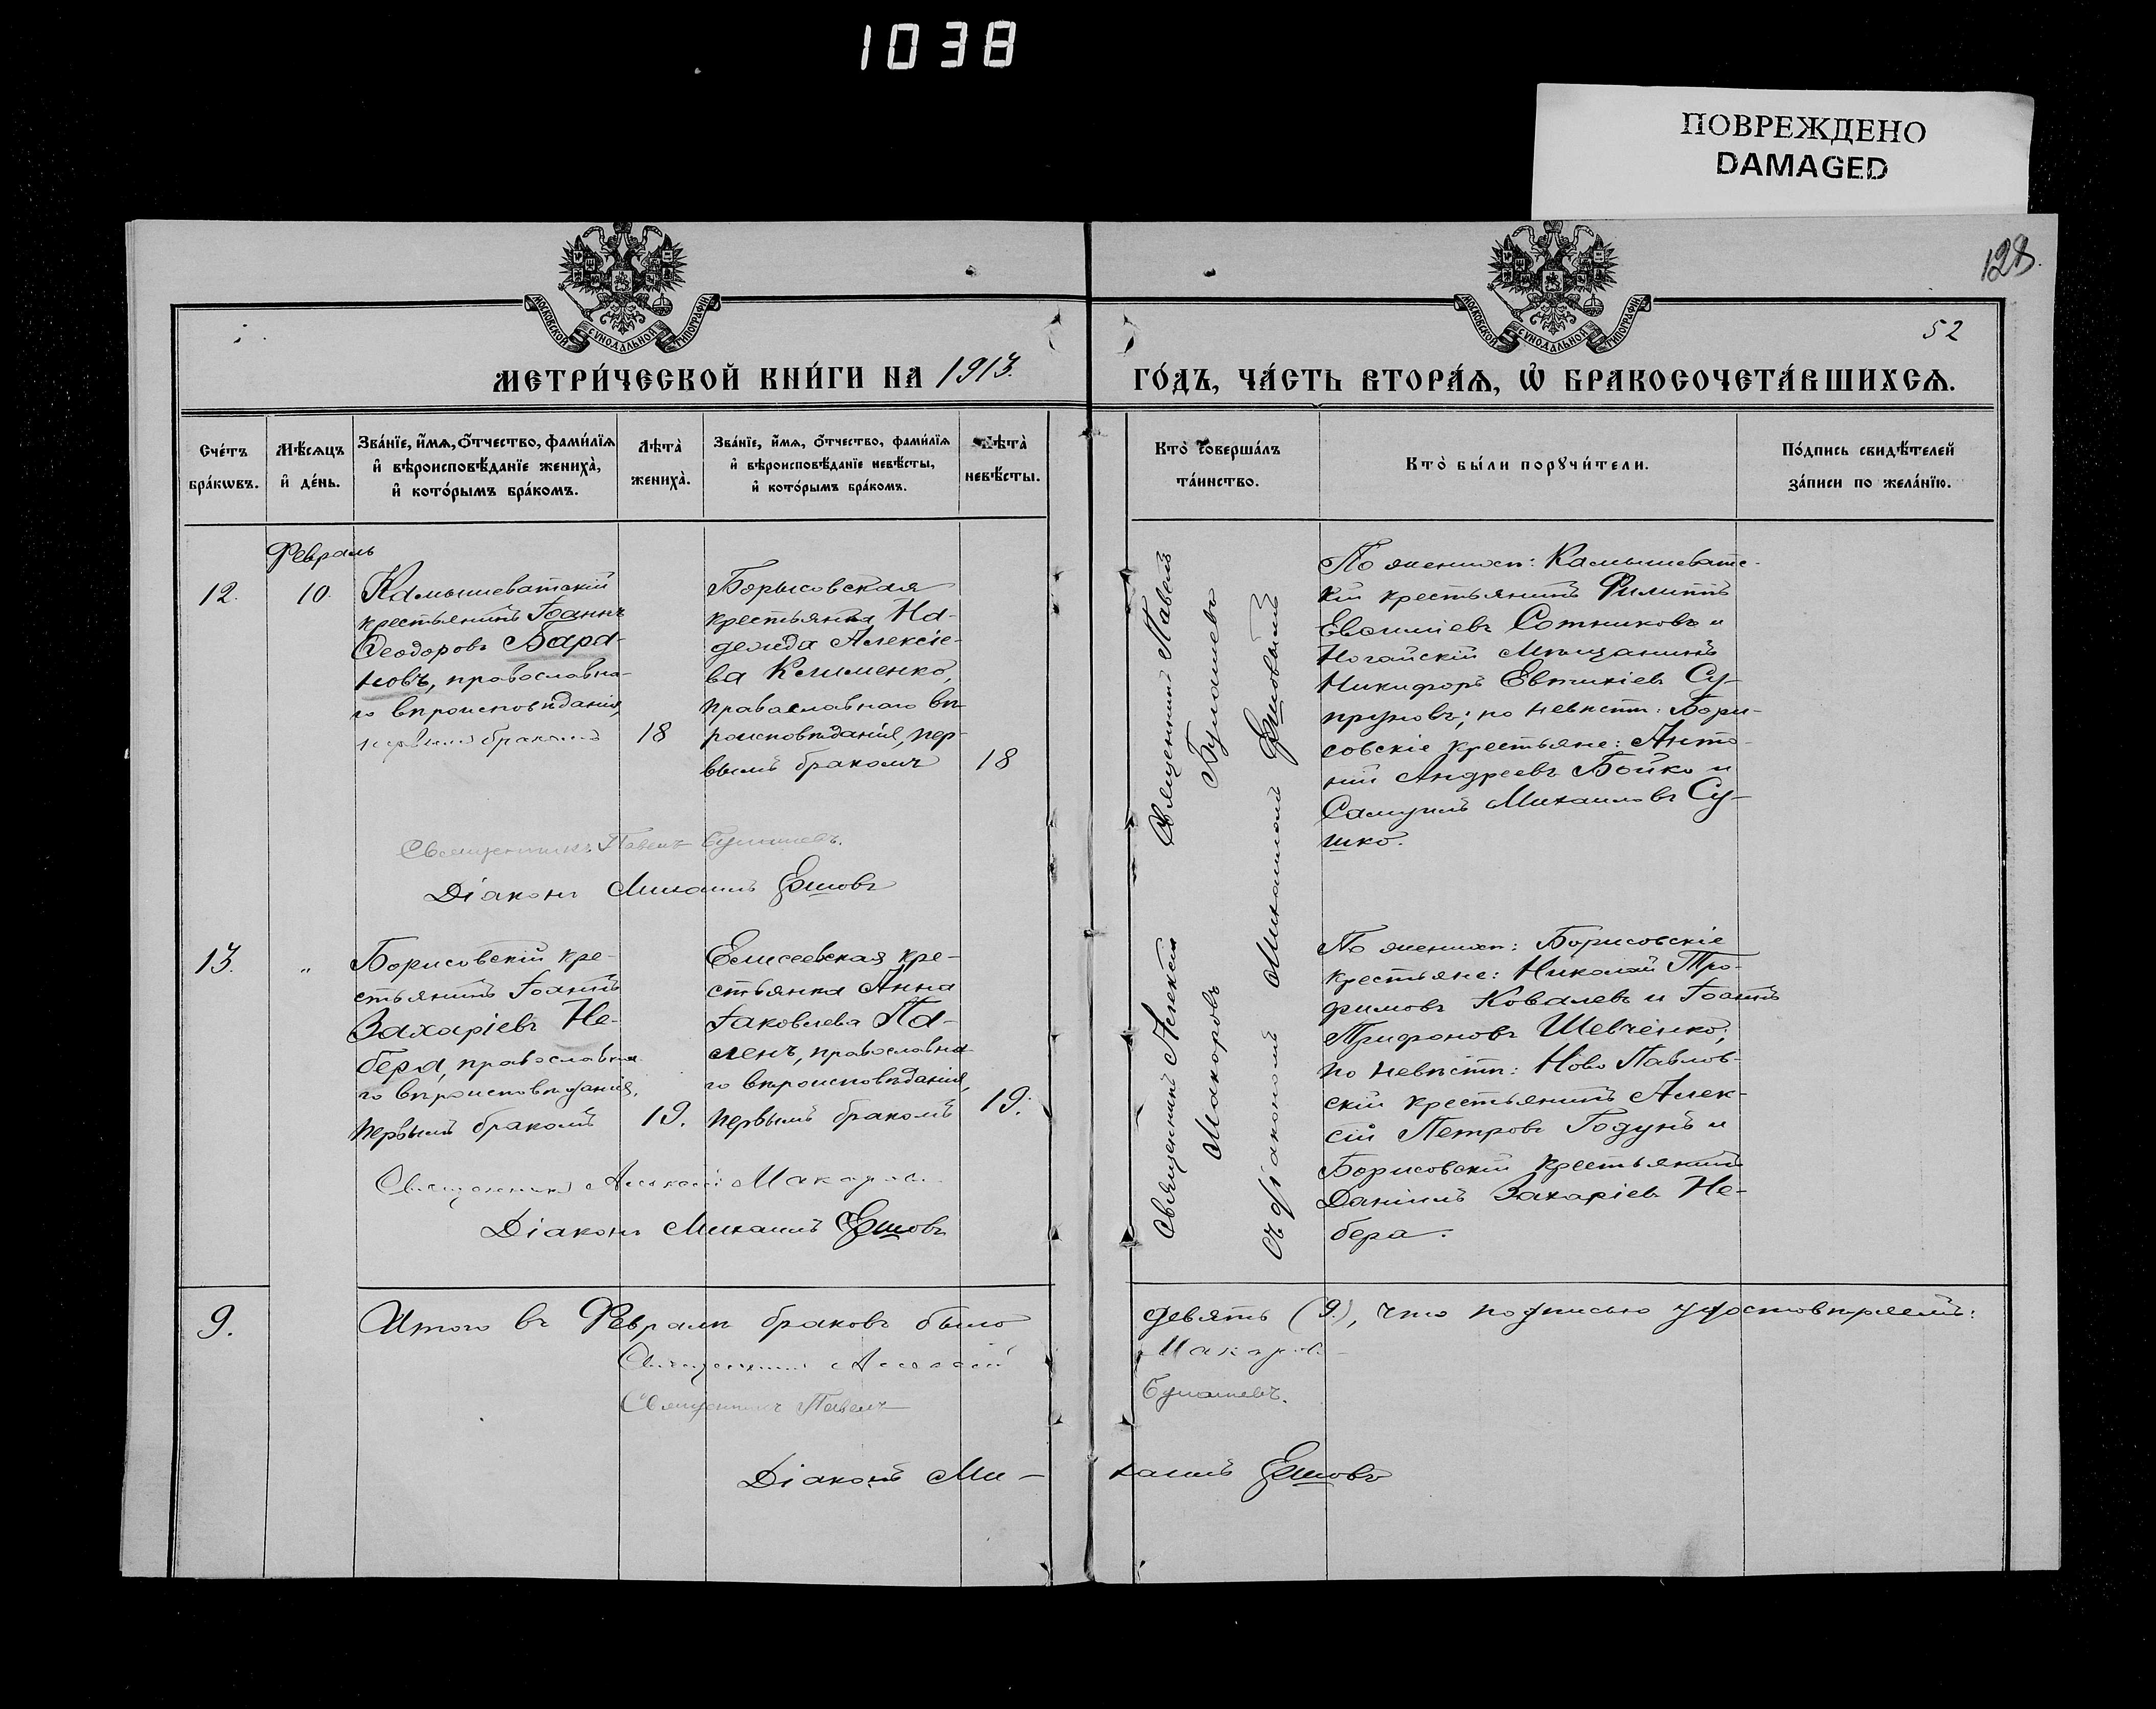 1038
ПОВРЕЖДЕНО
DAMAGED
128.
52
МОСКОВСКОЙ СУНОДАЛЬНОЙ ТИПОГРАФІИ
МОСКОВСКОЙ СУНОДАЛЬНОЙ ТИПОГРАФІИ
МЕТРИ́ЧЕСКОЙ КНИ́ГИ НА 1913.
ГО́ДЪ, ЧА́СТЬ ВТОРА́Ѧ, Ѿ БРАКОСОЧЕТА́ВШИХСѦ.
Сче́тъ
бра́кѡвъ.
Мѣ́сѧцъ
и҆ де́нь.
Зва́нїе, и҆́мѧ, ѻ҆́тчество, фами́лїѧ
и҆ вѣроисповѣ́данїе жениха̀,
и҆ кото́рымъ бра́комъ.
Лѣ́та̀
жениха̀.
Зва́нїе, и҆́мѧ, ѻ҆́тчество, фами́лїѧ
и҆ вѣроисповѣ́данїе невѣ́сты,
и҆ кото́рымъ бра́комъ.
Лѣ́та̀
невѣ́сты.
Кто̀ соверша́лъ
та́инство.
Кто̀ бы́ли порꙋчи́тели.
По́дпись свидѣ́телей
за́писи по жела́нїю.
Февраль
12.
10.
Камышеватскій
крестьянинъ Іоаннъ
Ѳеодоровъ Бара-
новъ, православна-
го вѣроисповѣданія,
первымъ бракомъ
18
Борисовская
крестьянка На-
дежда Алексіе-
ва Клименко,
православнаго вѣ-
роисповѣданія, пер-
вымъ бракомъ
18
Священникъ Павелъ
Діаконъ Михаилъ Ершовъ
Священникъ Павелъ
съ діакономъ Михаиломъ Ершовымъ
По женихѣ: Камышеватс-
кій крестьянинъ Филиппъ
Евѳиміевъ Сотниковъ и
Ногайскій мѣщанинъ
Никифоръ Евтихіевъ Су-
пруновъ; по невѣстѣ: Бори-
совскіе крестьяне: Анто-
ній Андреевъ Бойко и
Самуилъ Михаиловъ Су-
шко.
13.
"
Борисовскій кре-
стьянинъ Іоаннъ
Захаріевъ Не-
бера, православна-
го вѣроисповѣданія,
первымъ бракомъ
19.
Елисеевская кре-
стьянка Анна
Іаковлева Па-
ленъ, православна-
го вѣроисповѣданія,
первымъ бракомъ
19.
Священникъ Алексій Макаровъ
Діаконъ Михаилъ Ершовъ
Священникъ Алексій
Макаровъ
По женихѣ: Борисовскіе
крестьяне: Николай Тро-
фимовъ Ковалевъ и Іоаннъ
Трифоновъ Шевченко;
по невѣстѣ: Ново Павлов-
скій крестьянинъ Алек-
сій Петровъ Годунъ и
Борисовскій крестьянинъ
Даніилъ Захаріевъ Не-
бера.
9.
Итого въ Февралѣ браковъ было девять (9), что подписью удостовѣряемъ:
Священникъ Алексій Макаровъ
Священникъ Павелъ
Діаконъ Михаилъ Ершовъ